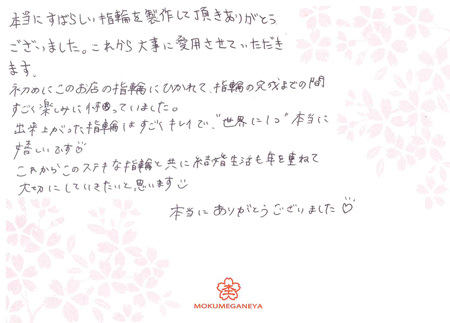 本当にすばらしい指輪を製作して頂きありがとう
ございました。これから大事に愛用させていただき
ます。
初めにこのお店の指輪にひかれて、指輪の完成までの間
すごく楽しみに待っていました。
出来上がった指輪はすごくキレイで、"世界に1つ"本当に
嬉しいです
これからこのステキな指輪と共に結婚生活も年を重ねて
大切にしていきたいと思います
本当にありがとうございました♡
MOKUMEGANEYA